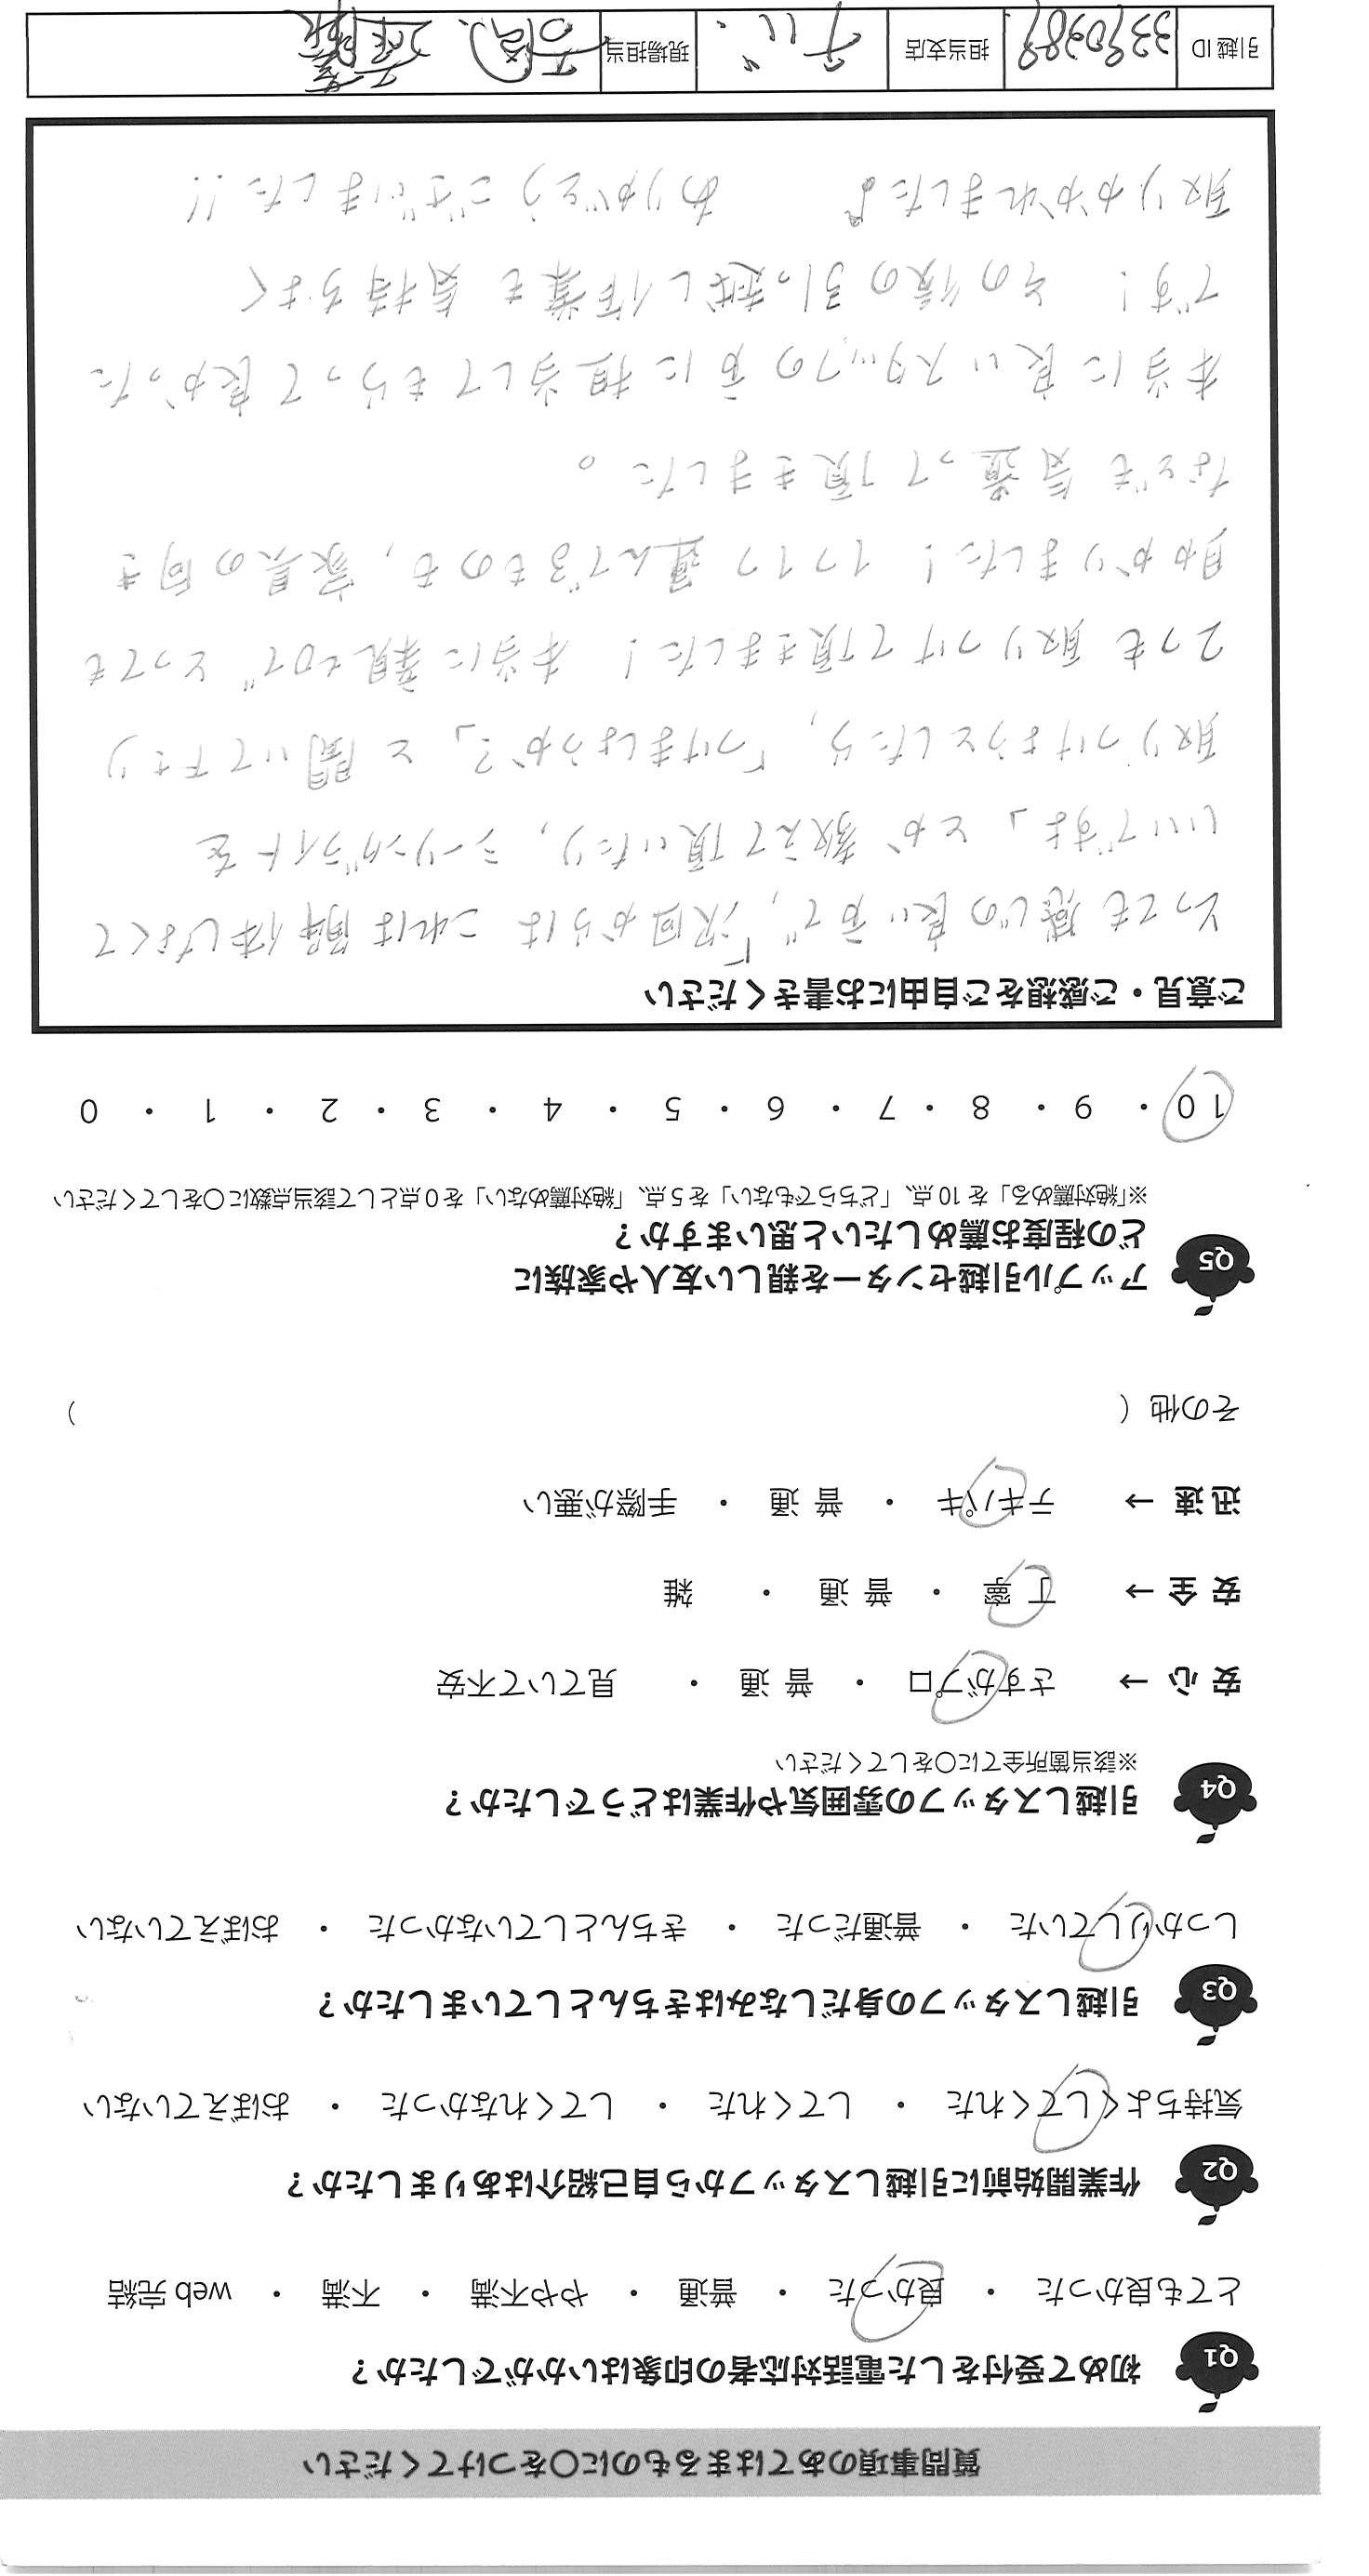 質問事項のあてはまるものに○をつけてください
Q1 初めて受付をした電話対応者の印象はいかがでしたか？
とても良かった ・ 良かった ・ 普通 ・ やや不満 ・ 不満 ・ web 完結
Q2 作業開始前に引越しスタッフから自己紹介はありましたか？
気持ちよくしてくれた ・ してくれた ・ してくれなかった ・ おぼえていない
Q3 引越しスタッフの身だしなみはきちんとしていましたか？
しっかりしていた ・ 普通だった ・ きちんとしていなかった ・ おぼえていない
Q4 引越しスタッフの雰囲気や作業はどうでしたか？
※該当箇所全てに○をしてください
安心 → さすがプロ ・ 普通 ・ 見ていて不安
安全 → 丁寧 ・ 普通 ・ 雑
迅速 → テキパキ ・ 普通 ・ 手際が悪い
その他（ ）
Q5 アップル引越センターを親しい友人や家族に
どの程度お薦めしたいと思いますか？
※「絶対薦める」を10点、「どちらでもない」を5点、「絶対薦めない」を0点として該当点数に○をしてください
10 ・ 9 ・ 8 ・ 7 ・ 6 ・ 5 ・ 4 ・ 3 ・ 2 ・ 1 ・ 0
ご意見・ご感想をご自由にお書きください
とっても感じの良い方で、「次回からは これは解体しなくて
いいですよ」とか 教えて頂いたり、シーリングライトを
取りつけようとしたら、「つけましょうか？」と聞いて下さり
2つも取りつけて頂きました！ 本当に親切で とっても
助かりました！ 1つ1つ運んでるものも、家具の向き
なども気遣って頂きました。
本当に良いスタッフの方に担当してもらって良かった
です！ その後の引っ越し作業も気持ちよく
取りかかれました♪ ありがとうございました!!
引越ID 3390389 担当支店 現場担当